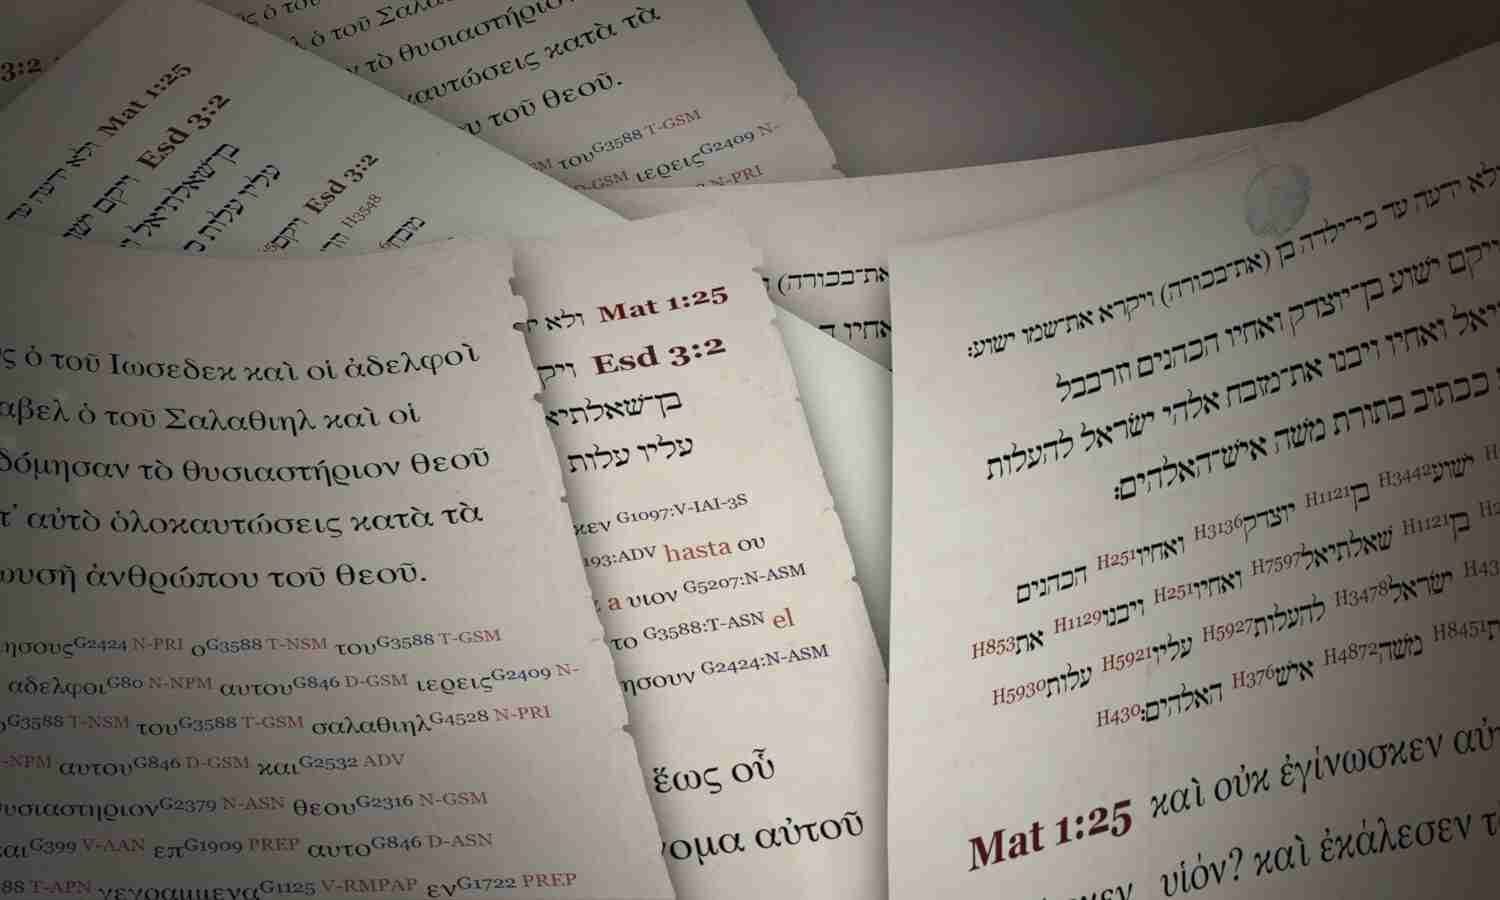 3:2
Mat 1:25 ולא ידעה עד
Esd 3:2 ויקם ישו
בן־שאלתיאל
עליו עלות כ
Esd 3:2 ויקם
H3548
מזבח
ὁ τοῦ
ὁ τοῦ Σαλα
τὸ θυσιαστήριο
καυτώσεις κατὰ τὰ
τοῦ θεοῦ.
τουG3588 T-GSM
D-GSM ιερειςG2409 N-
N-PRI
ς ὁ τοῦ Ιωσεδεκ καὶ οἱ ἀδελφοὶ
αβελ ὁ τοῦ Σαλαθιηλ καὶ οἱ
δόμησαν τὸ θυσιαστήριον θεοῦ
τ’ αὐτὸ ὁλοκαυτώσεις κατὰ τὰ
ωυσῆ ἀνθρώπου τοῦ θεοῦ.
ησουςG2424 N-PRI οG3588 T-NSM τουG3588 T-GSM
αδελφοιG80 N-NPM αυτουG846 D-GSM ιερειςG2409 N-
οG3588 T-NSM τουG3588 T-GSM σαλαθιηλG4528 N-PRI
-NPM αυτουG846 D-GSM καιG2532 ADV
υσιαστηριονG2379 N-ASN θεουG2316 N-GSM
καιG399 V-AAN επG1909 PREP αυτοG846 D-ASN
88 T-APN γεγραμμεναG1125 V-RMPAP ενG1722 PREP
Mat 1:25 ולא
Esd 3:2 ויק
בן־שאלתיא
עליו עלות
κεν G1097:V-IAI-3S
193:ADV hasta ου
a υιον G5207:N-ASM
το G3588:T-ASN el
ησουν G2424:N-ASM
ἕως οὗ
νομα αὐτοῦ
את־בכורה)
אחיו ה
ולא ידעה עד כי־ילדה בן (את־בכורה) ויקרא את־שמו ישוע:
ויקם ישוע בן־יוצדק ואחיו הכהנים וזרבבל
יאל ואחיו ויבנו את־מזבח אלהי ישראל להעלות
ככתוב בתורת משה איש־האלהים:
ישועH3442 בןH1121 יוצדקH3136 ואחיוH251 הכהנים
בןH1121 שאלתיאלH7597 ואחיוH251 ויבנוH1129 אתH853
ישראלH3478 להעלותH5927 עליוH5921 עלותH5930
H8451 משהH4872 אישH376 האלהים:H430
Mat 1:25 καὶ οὐκ ἐγίνωσκεν αὐ
υἱόν? καὶ ἐκάλεσεν τ